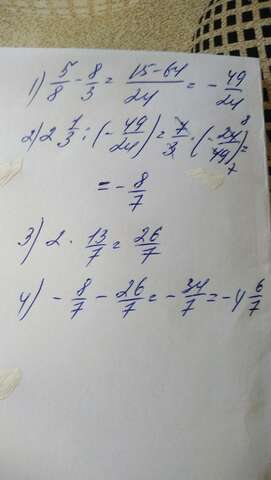 1) 5/8 - 8/3 = 15-64/24 = - 49/24
2) 2 1/3 : (- 49/24) = 7/3 · (- 24/49) 8 7 =
= - 8/7
3) 2 · 13/7 = 26/7
4) - 8/7 - 26/7 = - 34/7 = -4 6/7